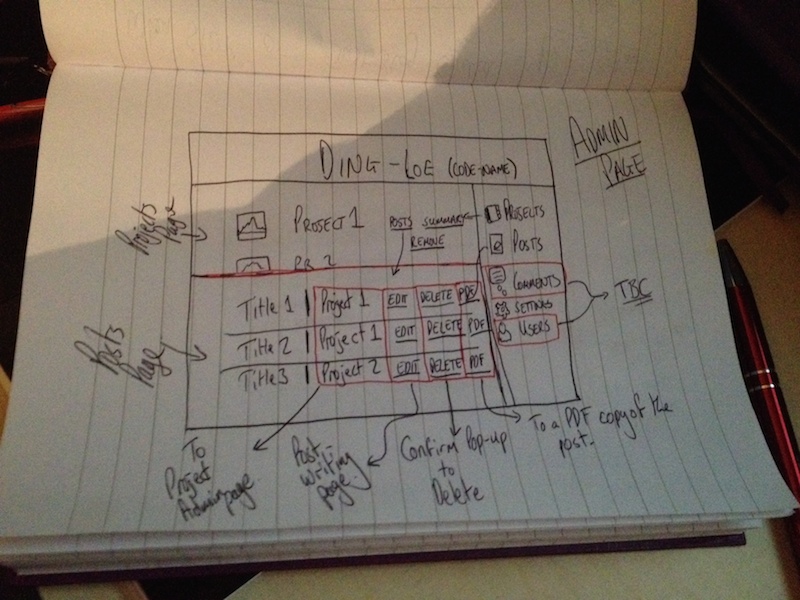 ADMIN
PAGE
DING-LOE (CODE-NAME)
Projects
Page
PROJECT 1
POSTS SUMMARY
REMOVE
PROJECTS
POSTS
COMMENTS
SETTINGS
USERS
TBC
PR 2
Posts
Page
Title 1 Project 1 EDIT DELETE PDF
Title 2 Project 1 EDIT DELETE PDF
Title 3 Project 2 EDIT DELETE PDF
To
Project
Admin page
Post-
Writing
page.
Confirm Pop-up
to
Delete
To a PDF copy of the
post.